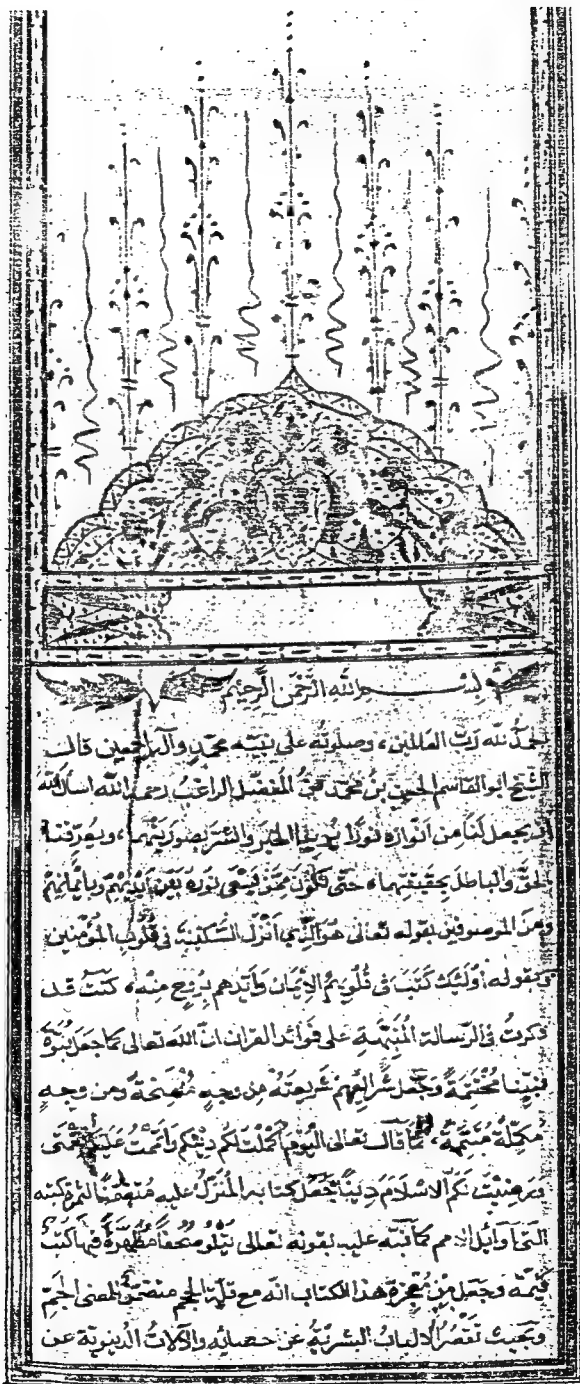 بسم الله الرحمن الرحيم
الحمد لله رب العالمين، وصلوته على نبيه محمد وآله اجمعين قال
الشيخ ابو القاسم الحسين بن محمد بن المفضل الراغب رحمه الله اسأل الله
ان يجعل لنا من انواره نورًا يرينا الخير والشر بصورتيهما، ويعرفنا
الحق والباطل بحقيقتهما، حتى نكون ممن يسعى نوره بين ايديهم وبايمانهم
ومن الموصوفين بقوله تعالى هو الذي انزل السكينة في قلوب المؤمنين
وبقوله اولئك كتب في قلوبهم الايمان وايدهم بروح منه، كنت قد
ذكرت في الرسالة المنبهة على فوائد القران ان الله تعالى كما جعل نبوة
نبينا مختتمة وجعل شرائعهم بشريعته من وجه منتسخة ومن وجه
مكملة متممة، كما قال تعالى اليوم اكملت لكم دينكم واتممت عليكم نعمتى
ورضيت لكم الاسلام دينًا جعل كتابه المنزل عليه متضمنًا لثمرة كتبه
التى اوائل الامم كما نبه عليه بقوله تعالى يتلو صحفًا مطهرة فيها كتب
قيمة وجعل من معجزة هذا الكتاب انه مع قلة الحجم متضمن للمعنى الجم
وبحيث تقصر الالباب البشرية عن احصائه والآلات الدنيوية عن